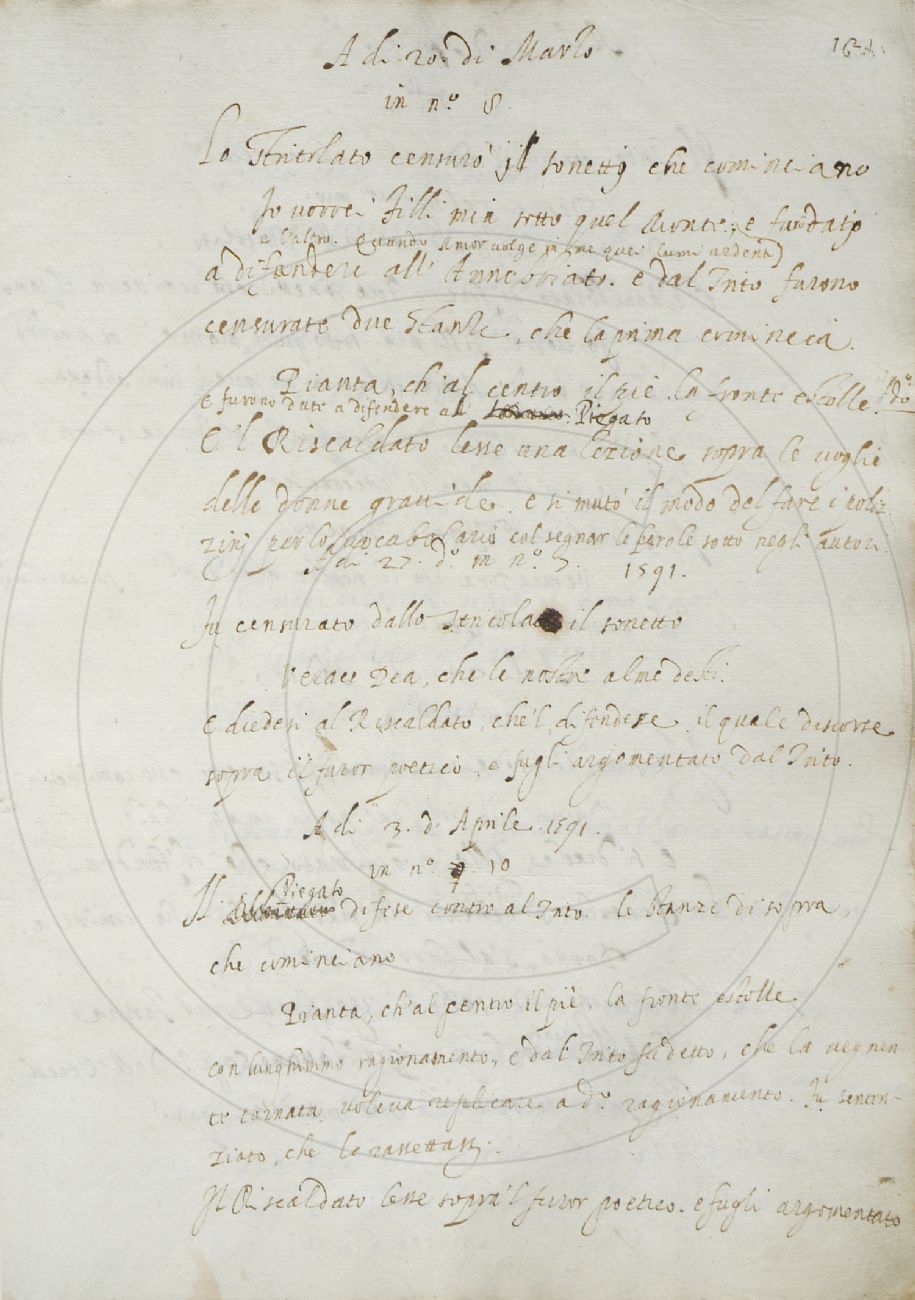 A di 20. di Marzo
in n.º 8.
Lo Stritolato censurò il sonetto che cominciano
Io vorrei Filli mia sotto quel Monte, e fu dato
e l'altro. Quando Amor volge in me quei lumi ardenti)
a difendere all' Annebbiato. e dal Trito furono
censurate due Stanze, che la prima comincia.
Pianta, ch'al centro il piè, la fronte estolle.
e furono date a difendere al Piegato
E 'l Riscaldato lesse una lezione sopra le voglie
delle donne gravide. e si mutò il modo del fare i poliz-
zini per lo vocabolario col segnar le parole sotto negli autori.
A di 27. d.º in n.º 7. 1591.
Fu censurato dallo Stritolato il sonetto
Verace Dea, che le nostre alme desti.
e diedesi al Riscaldato, che 'l difendesse, il quale discorse
sopra il furor poetico, e fugli argomentato dal Trito.
A di 3. d' Aprile 1591.
in n.º 10
Il Piegato difese contro al Trito le Stanze di sopra,
che cominciano
Pianta, ch'al centro il piè, la fronte estolle
con lunghissimo ragionamento, e dal Trito sudetto, che la vegnen-
te tornata voleva replicare a d.º ragionamento. Fu senten-
ziato, che le rassettassi.
Il Riscaldato lesse sopra 'l furor poetico. e fugli argomentato